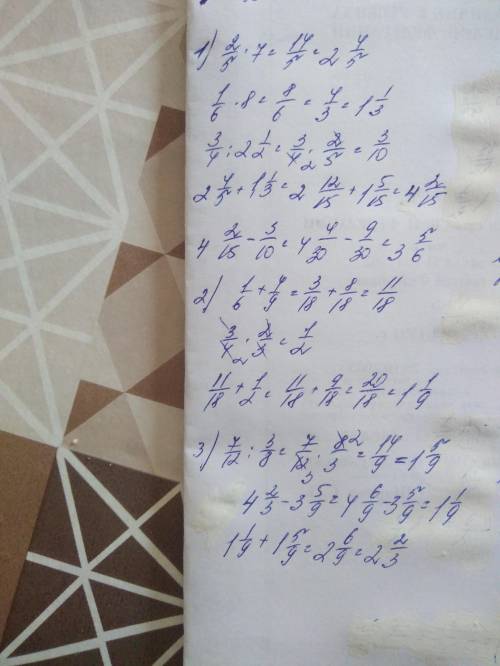 1) 2/5 · 7 = 14/5 = 2 4/5
1/6 · 8 = 8/6 = 4/3 = 1 1/3
3/4 : 2 1/2 = 3/4 2 · 2/5 = 3/10
2 4/5 + 1 1/3 = 2 12/15 + 1 5/15 = 4 2/15
4 2/15 - 3/10 = 4 4/30 - 9/30 = 3 5/6
2) 1/6 + 4/9 = 3/18 + 8/18 = 11/18
3/4 2 · 2/3 = 1/2
11/18 + 1/2 = 11/18 + 9/18 = 20/18 = 1 1/9
3) 7/12 : 3/8 = 7/12 3 · 8 2/3 = 14/9 = 1 5/9
4 2/3 - 3 5/9 = 4 6/9 - 3 5/9 = 1 1/9
1 1/9 + 1 5/9 = 2 6/9 = 2 2/3